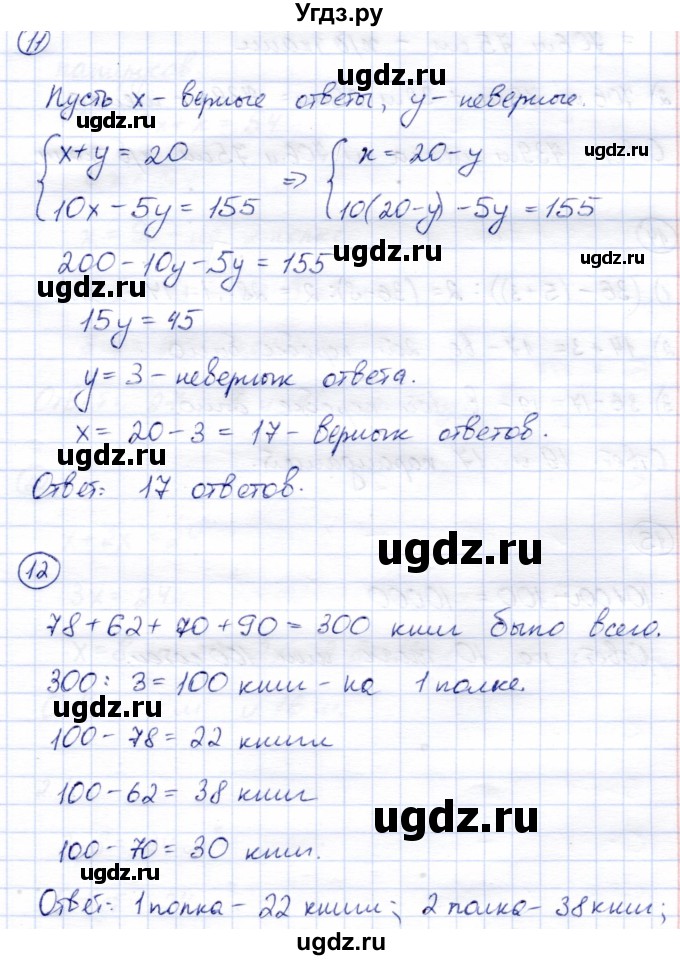 Угдз.ру
11
Пусть x - верные ответы, y - неверные.
ugdz.ru
ugdz.ru
{ x + y = 20 => { x = 20 - y
ugdz.ru
10x - 5y = 155 10(20 - y) - 5y = 155
200 - 10y - 5y = 155
ugdz.ru
ugdz.ru
15y = 45
y = 3 - неверных ответа.
ugdz.ru
x = 20 - 3 = 17 - верных ответов.
ugdz.ru
Ответ: 17 ответов.
ugdz.ru
12
78 + 62 + 70 + 90 = 300 книг было всего.
ugdz.ru
300 : 3 = 100 книг - на 1 полке.
ugdz.ru
100 - 78 = 22 книги
100 - 62 = 38 книг
ugdz.ru
100 - 70 = 30 книг.
ugdz.ru
Ответ: 1 полка - 22 книги; 2 полка - 38 книг;
ugdz.ru